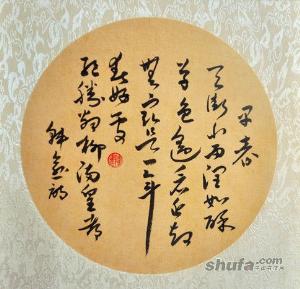 早春
天街小雨潤如酥
草色遥看近却
無最是一年
春好處
絶勝烟柳滿皇都
韓愈詩
shufa.com